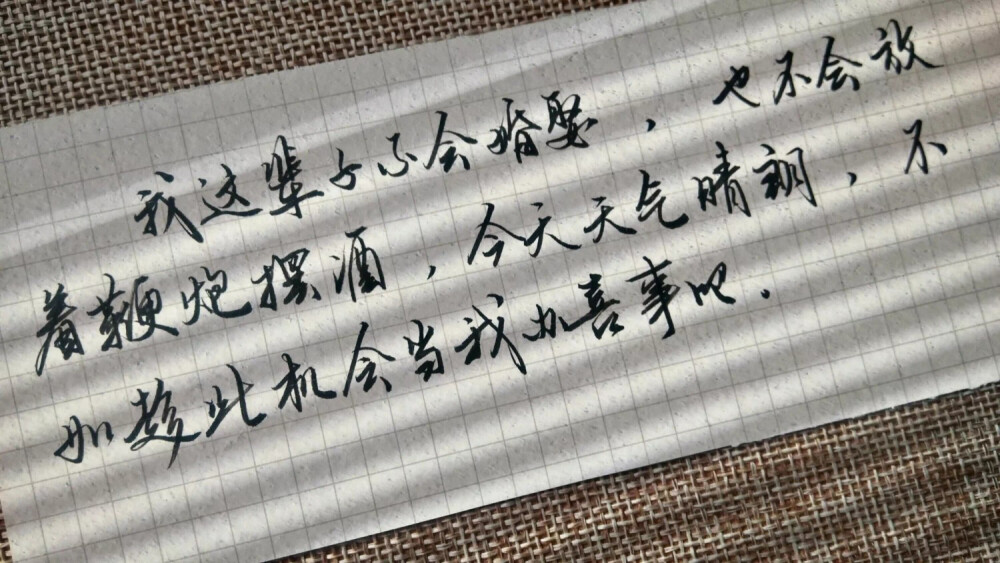 我这辈子不会婚娶，也不会放
着鞭炮摆酒，今天天气晴朗，不
如趁此机会当我办喜事吧.